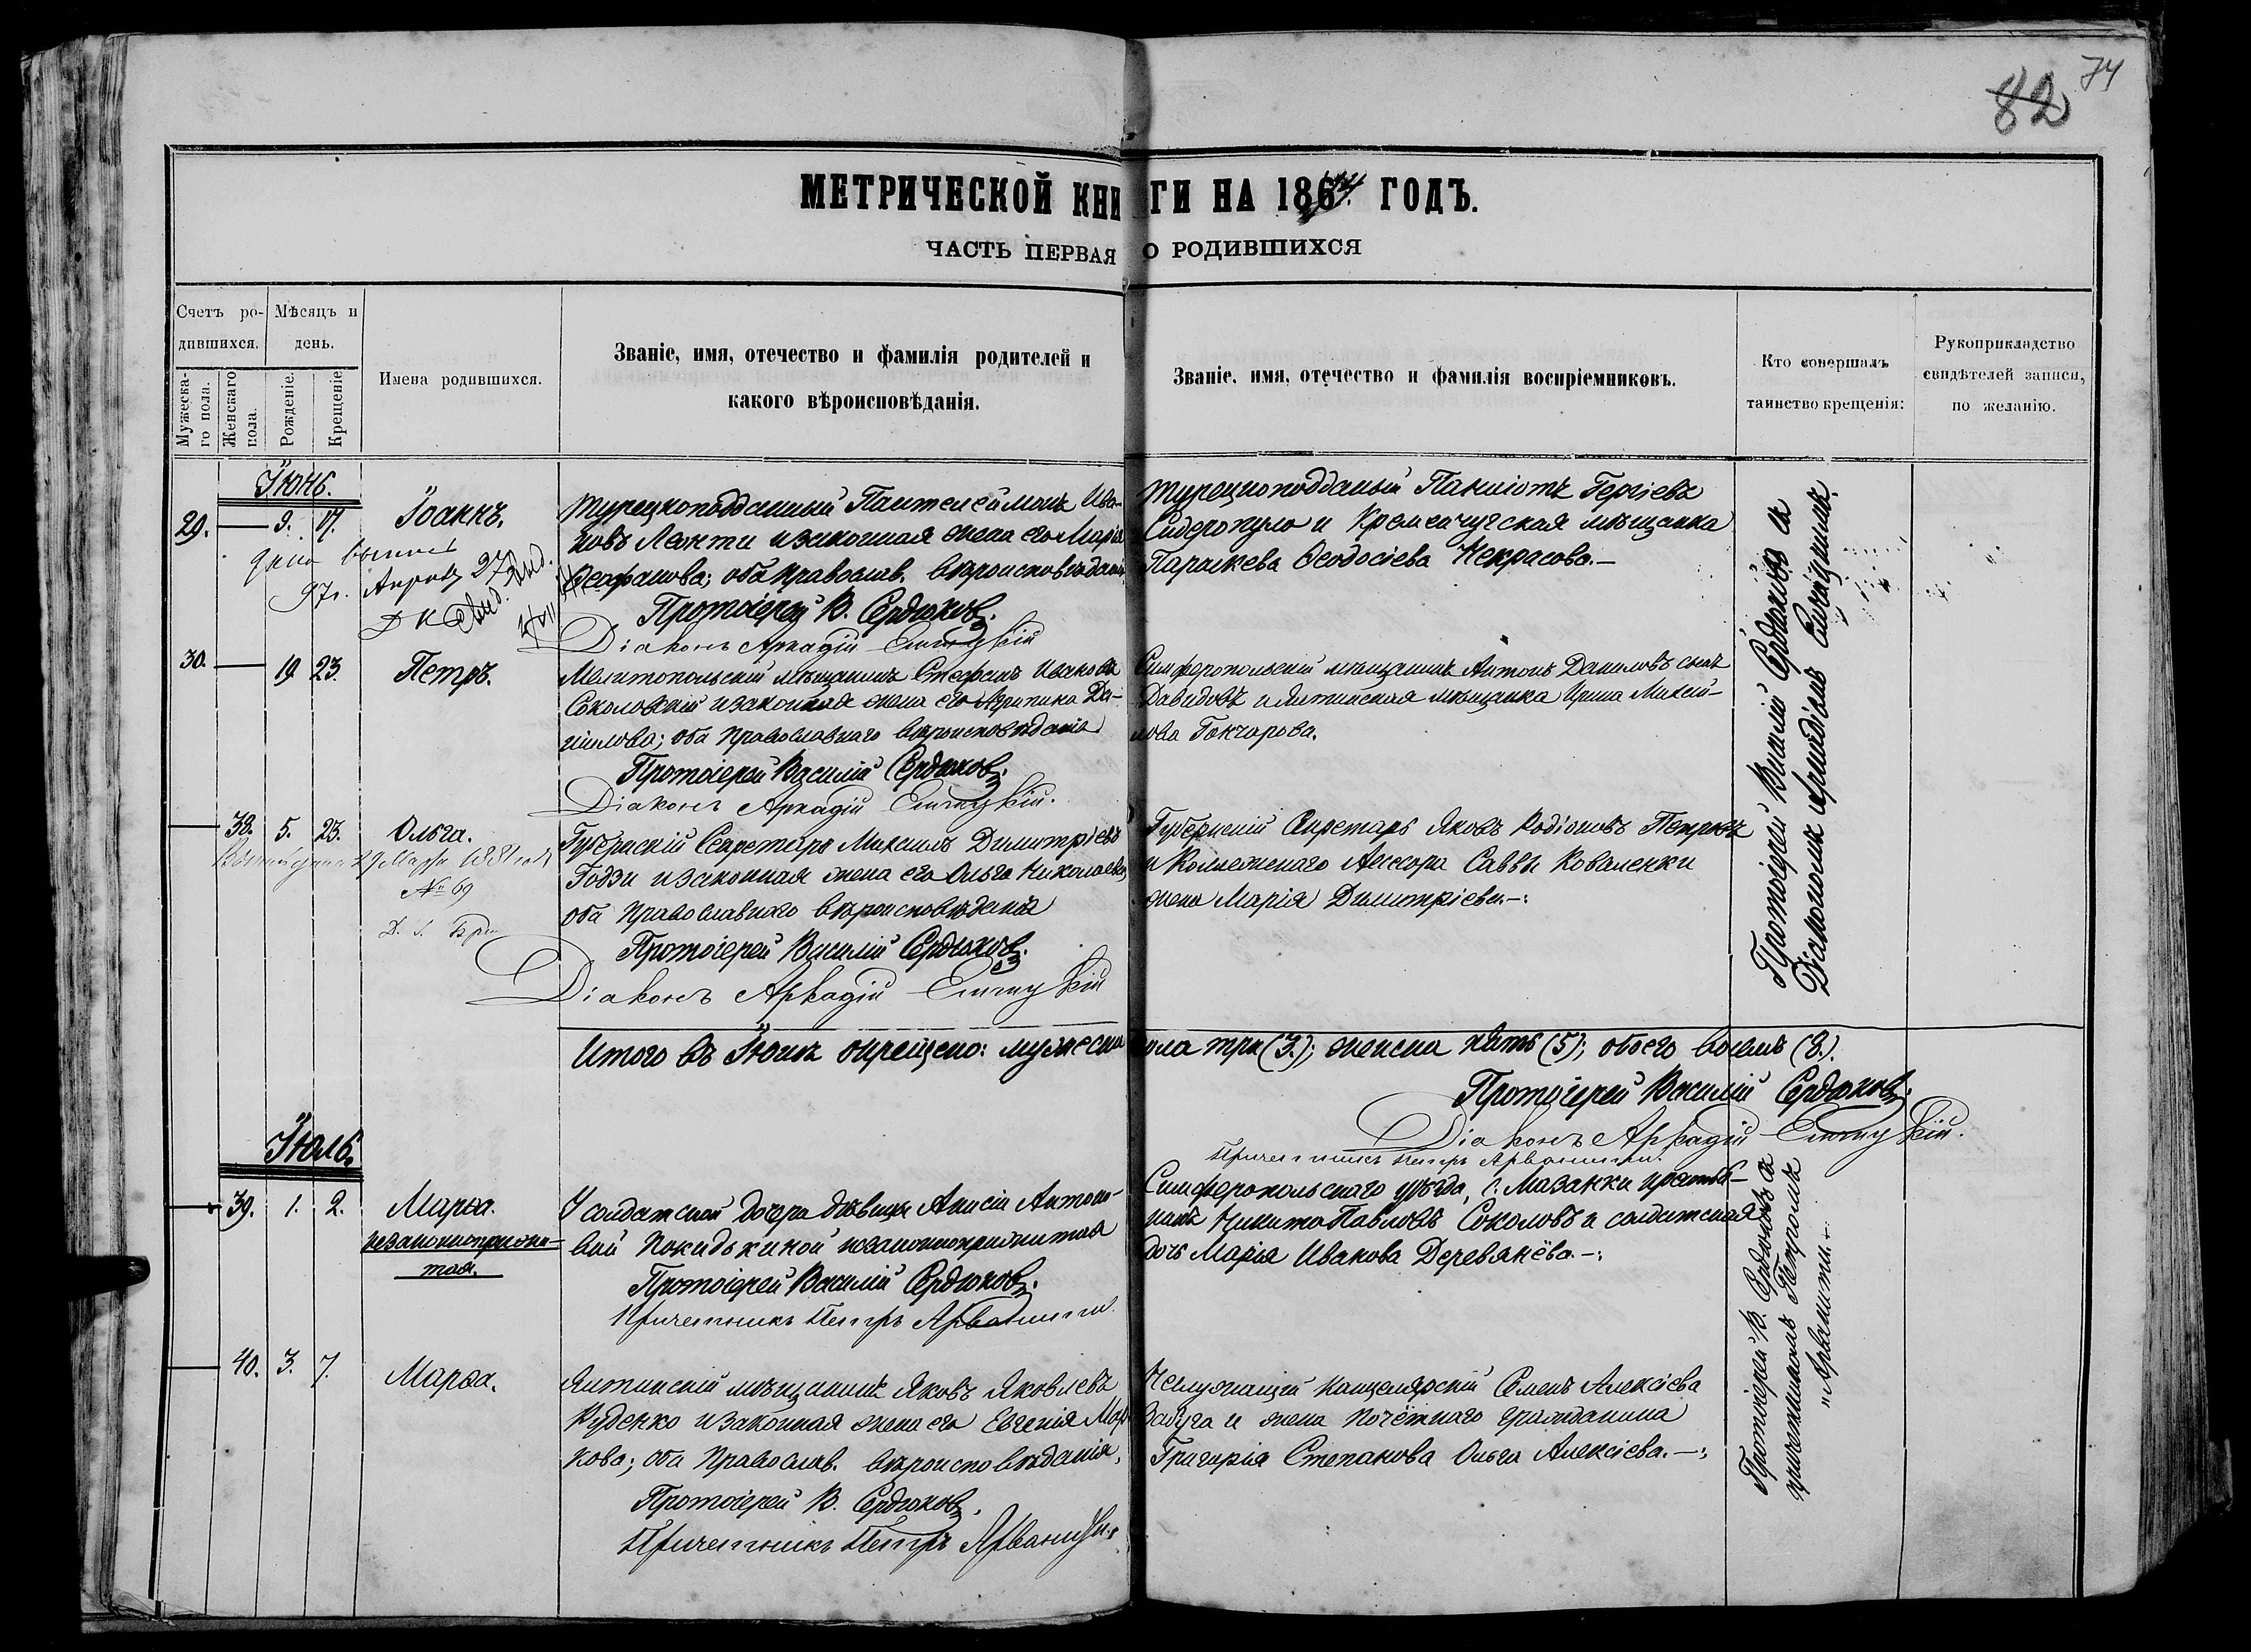 74
82
МЕТРИЧЕСКОЙ КНИГИ НА 186 ГОДЪ.
ЧАСТЬ ПЕРВАЯ О РОДИВШИХСЯ
Счетъ родившихся.
Мужескаго пола.
Женскаго пола.
Мѣсяцъ и день.
Рожденіе.
Крещеніе
Имена родившихся.
Званіе, имя, отечество и фамилія родителей и
какого вѣроисповѣданія.
Званіе, имя, отечество и фамилія воспріемниковъ.
Кто совершалъ
таинство крещенія:
Рукоприкладство
свидѣтелей записи,
по желанію.
Іюнь.
29. 9. 17. Іоаннъ.
97 г. Апрѣля 27
Турецкоподданный Пантелеймонъ Ива-
новъ Леонти и законная жена его Марія
Ѳеофанова; оба православ. вѣроисповѣданія
Протоіерей В. Сердюковъ.
Діаконъ Аркадій
Турецкоподданый Панаіотъ Гергіевъ
Сидеропуло и Кременчугская мѣщанка
Параскева Ѳеодосіева Некрасова.—
30. 19 23. Петръ.
Мелитопольскій мѣщанинъ Стефанъ Ивановъ
Соколовскій и законная жена его Да-
ніилова; оба Православнаго вѣроисповѣданія
Протоіерей Василій Сердюковъ.
Діаконъ Аркадій
Симферопольскій мѣщанинъ Антонъ Даниловъ сынъ
Давидовъ и Ялтинская мѣщанка Ирина Михай-
лова Гончарова.
38. 5. 23. Ольга.
29 Марта 1881 года
№ 69
Губернскій Секретарь Михаилъ Димитріевъ
Годзи и законная жена его Ольга Николаевна
оба Православнаго вѣроисповѣданія
Протоіерей Василій Сердюковъ.
Діаконъ Аркадій
Губернскій Секретарь Яковъ Родіоновъ Петровъ
и Коллежскаго Ассесора Саввы Коваленки
жена Марія Димитріева.—:
Протоіерей Василій Сердюковъ съ
Діакономъ Аркадіемъ
Итого въ Іюнѣ окрещено: мужеска пола три (3.); женска пять (5); обоего восемь (8.).
Протоіерей Василій Сердюковъ.
Діаконъ Аркадій
Причетникъ Петръ Арванити.
Іюль.
39. 1. 2. Марѳа.
незаконноприжи-
тая.
У солдатской дочери дѣвицы Анисіи Антоно-
вой незаконноприжитая
Протоіерей Василій Сердюковъ.
Причетникъ Петръ Арванити.
Симферопольскаго уѣзда, с. Мазанки крестья-
нинъ Никита Павловъ Соколовъ и солдатская
дочь Марія Иванова Деревянёва.—:
Протоіерей В. Сердюковъ съ
причетникомъ Петромъ
Арванити.—
40. 3. 7. Марѳа.
Ялтинскій мѣщанинъ Яковъ Яковлевъ
Руденко и законная жена его Евгенія Мар-
кова; оба Православ. вѣроисповѣданія.
Протоіерей В. Сердюковъ.
Причетникъ Петръ Арванити.
Неслужащій канцелярскій Семенъ Алексіевъ
и жена Почётнаго гражданина
Григорія Степанова Ольга Алексіева.—: